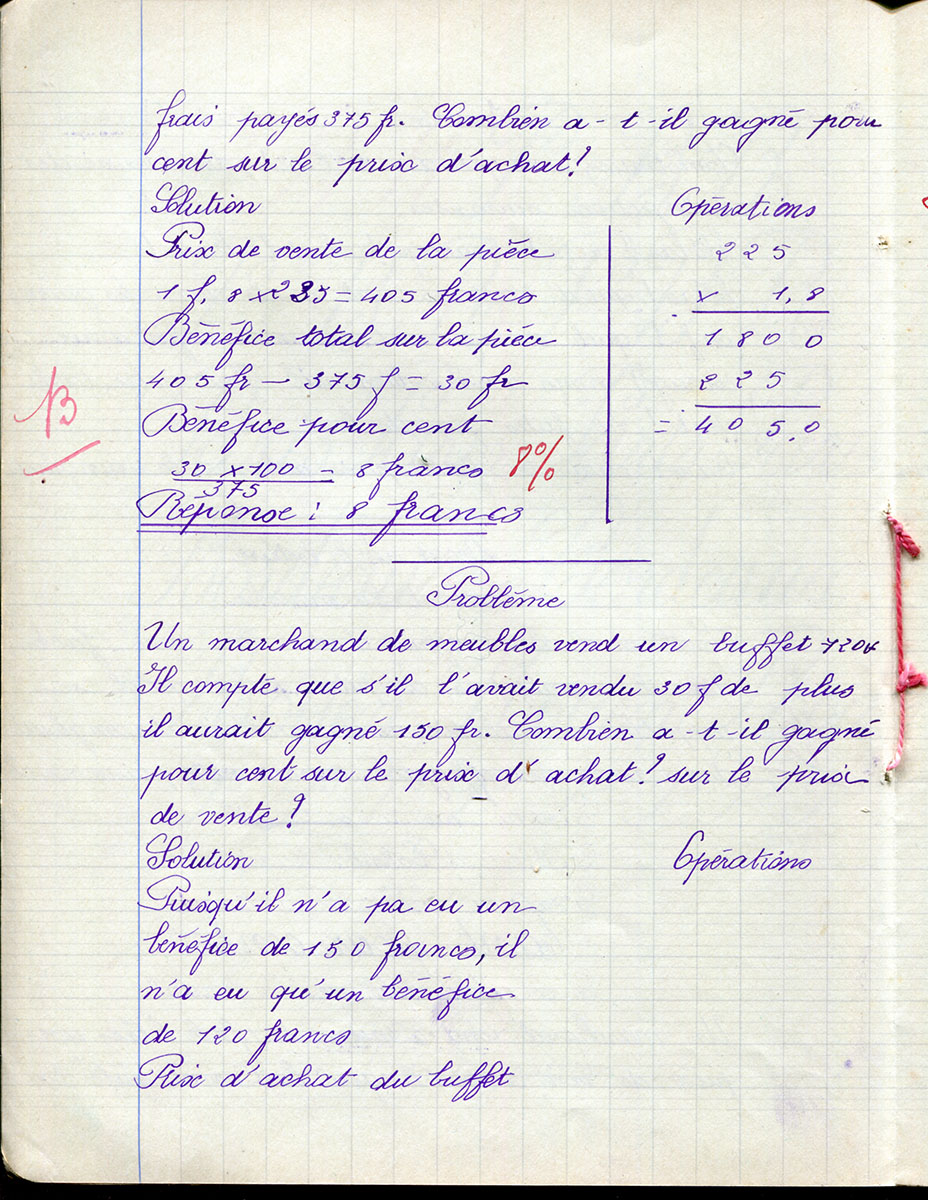 frais payés 375 fr. Combien a-t-il gagné pour
cent sur le prix d'achat?
Solution
Opérations
Prix de vente de la pièce
225
1 f, 8 x 225 = 405 francs
x 1,8
Bénéfice total sur la pièce
1800
405 fr — 375 f = 30 fr
225
B
Bénéfice pour cent
= 405,0
30 x 100 = 8 francs 8%
375
Réponse : 8 francs
Problème
Un marchand de meubles vend un buffet 720f
Il compte que s'il l'avait vendu 30 f de plus
il aurait gagné 150 fr. Combien a-t-il gagné
pour cent sur le prix d'achat? sur le prix
de vente?
Solution
Opérations
Puisqu'il n'a pa eu un
bénéfice de 150 francs, il
n'a eu qu'un bénéfice
de 120 francs
Prix d'achat du buffet